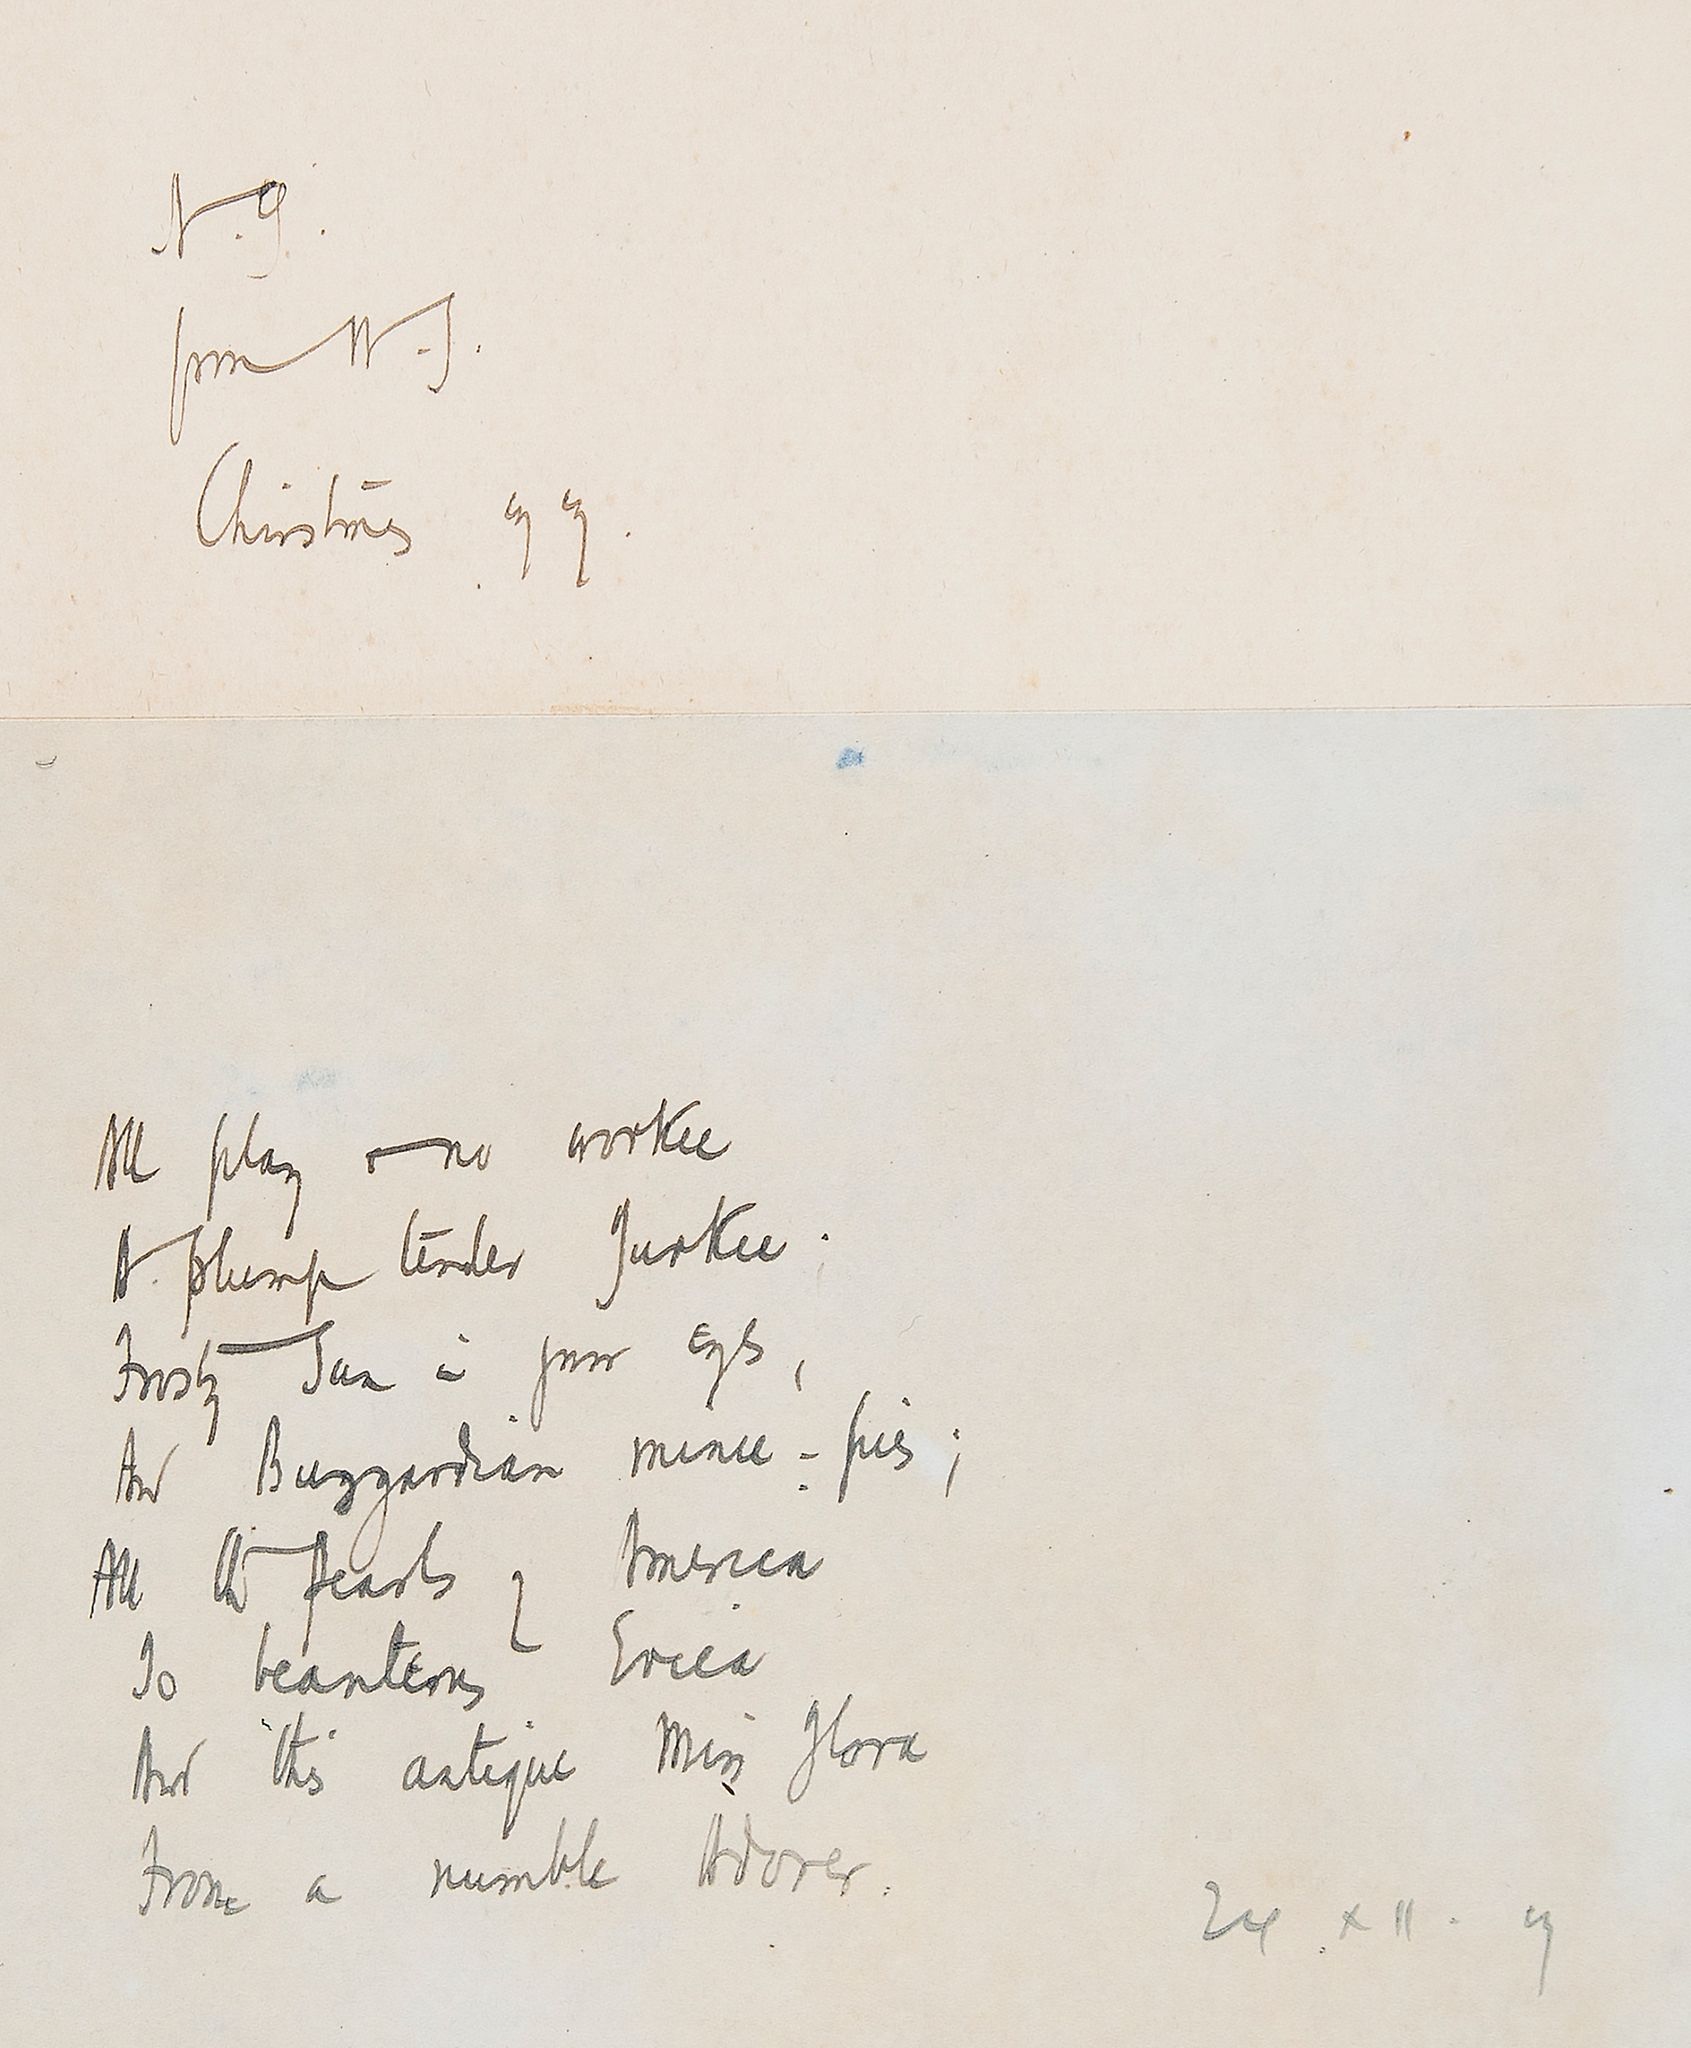 N. G.
from W. J.
Christmas 99.
All play & no workee
A plump tender Turkee.
Frosty Sun in your eyes,
And Buzzardian mince-pies;
All the Pearls of America
To beauteous Erica
And this antique Miss Flora
From a numble Adorer.
24 XII. 9